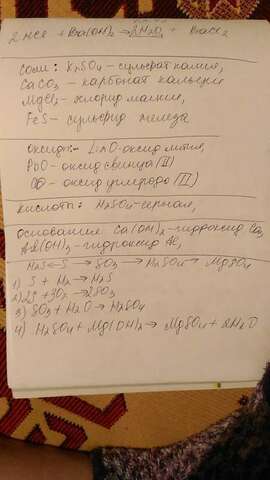 2HCl + Ba(OH)₂ → 2H₂O + BaCl₂
соли: K₂SO₄ - сульфат калия,
CaCO₃ - карбонат кальция
MgCl₂ - хлорид магния,
FeS - сульфид железа
оксиды: Li₂O - оксид лития,
PbO - оксид свинца (II)
CO - оксид углерода (II)
кислоты: H₂SO₄ - серная,
Основания: Ca(OH)₂ - гидроксид Ca,
Al(OH)₃ - гидроксид Al,
H₂S ← S → SO₃ → H₂SO₄ → MgSO₄
1) S + H₂ → H₂S
2) 2S + 3O₂ → 2SO₃
3) SO₃ + H₂O → H₂SO₄
4) H₂SO₄ + Mg(OH)₂ → MgSO₄ + 2H₂O